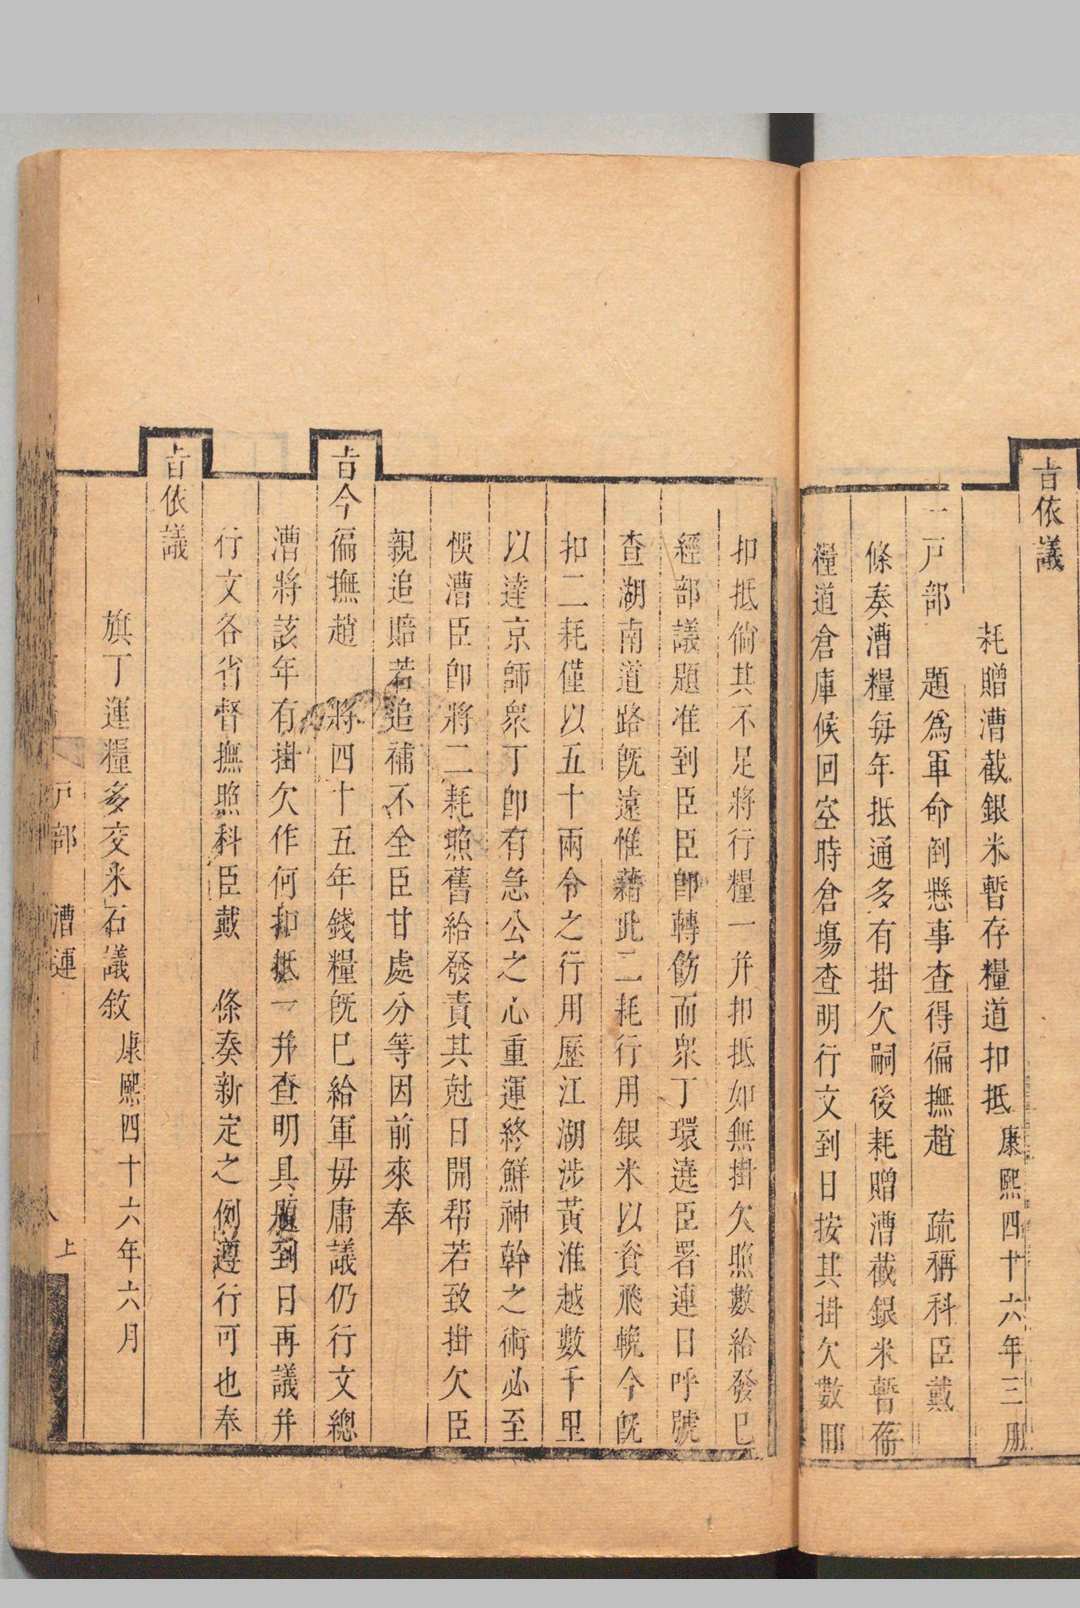 旨依議
耗贈漕截銀米暫存糧道扣抵康熙四十六年三
一戸部　題爲軍命倒懸事查得偏撫趙　疏稱科臣戴
條奏漕糧每年抵通多有掛欠嗣後耗贈漕截銀米暫
糧道倉庫候回空時倉塲查明行文到日按其掛欠數
扣抵倘其不足將行糧一并扣抵如無掛欠照數給發已
經部議題准到臣臣卽轉飭而衆丁環遶臣署連日呼號
查湖南道路旣遠惟藉此二耗行用銀米以資飛輓今旣
扣二耗僅以五十兩令之行用歷江湖涉黃淮越數千里
以達京師衆丁卽有急公之心重運終鮮神幹之術必至
悞漕臣卽將二耗照舊給發責其尅日開帮若致掛欠臣
親追賠若追補不全臣甘處分等因前來奉
旨今偏撫趙　將四十五年錢糧旣已給軍毋庸議仍行文總
漕將該年有掛欠作何扣抵一并查明具題到日再議并
行文各省督撫照科臣戴　條奏新定之例遵行可也奉
旨依議
旗丁運糧多交米石議敘康熙四十六年六月
戸部　漕運　　八　上